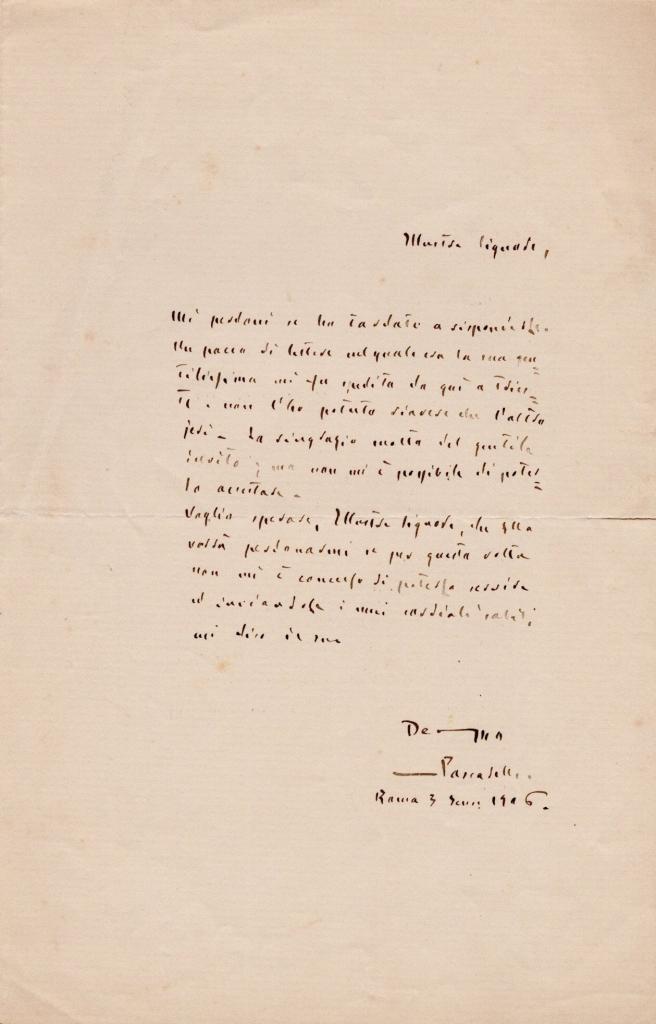 Illustre Signore,
Mi perdoni se ho tardato a risponderle.
Un pacco di lettere nel quale era la sua gen=
tilissima mi fu spedita da qui a Tries=
te e non l'ho potuto riavere che l'altro
jeri. La ringrazio molto del gentile
invito; ma non mi è possibile di poter=
lo accettare.
Voglio sperare, Illustre Signore, che Ella
vorrà perdonarmi se per questa volta
non mi è concesso di poterla servire
ed inviandole i miei cordiali saluti,
mi dico il suo
Dev mo
Pascarella.
Roma 3 1906.